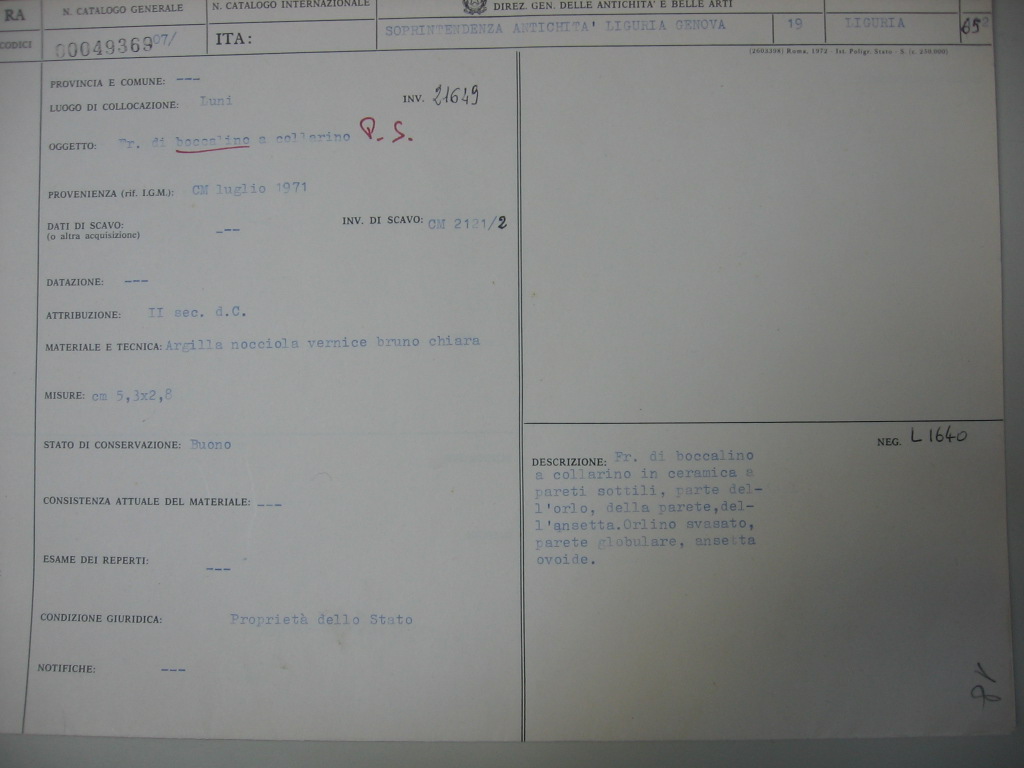 RA
N. CATALOGO GENERALE
N. CATALOGO INTERNAZIONALE
DIREZ. GEN. DELLE ANTICHITA' E BELLE ARTI
CODICI
0004936907/
ITA:
SOPRINTENDENZA ANTICHITA' LIGURIA GENOVA
19
LIGURIA
(2603398) Roma, 1972 - Ist. Poligr. Stato - S. (c. 250.000)
PROVINCIA E COMUNE: ---
LUOGO DI COLLOCAZIONE: Luni
INV. 21649
OGGETTO: Fr. di boccalino a collarino P. S.
PROVENIENZA (rif. I.G.M.): CM luglio 1971
DATI DI SCAVO: ---
INV. DI SCAVO: CM 2121/2
(o altra acquisizione)
DATAZIONE: ---
ATTRIBUZIONE: II sec. d.C.
MATERIALE E TECNICA: Argilla nocciola vernice bruno chiara
MISURE: cm 5,3x2,8
STATO DI CONSERVAZIONE: Buono
CONSISTENZA ATTUALE DEL MATERIALE: ---
ESAME DEI REPERTI: ---
CONDIZIONE GIURIDICA: Proprietà dello Stato
NOTIFICHE: ---
NEG. L 1640
DESCRIZIONE: Fr. di boccalino
a collarino in ceramica a
pareti sottili, parte del-
l'orlo, della parete,del-
l'ansetta.Orlino svasato,
parete globulare, ansetta
ovoide.